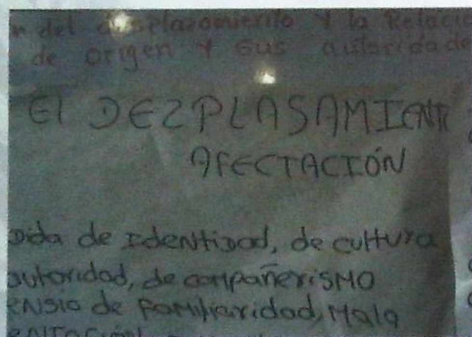 del desplazamiento y la Relaci
de origen y sus autoridade
El DEZPLASAMIENT
AFECTACIÓN
dida de Identidad, de cultura
autoridad, de compañerismo
ensio de familiaridad, Mala
entación